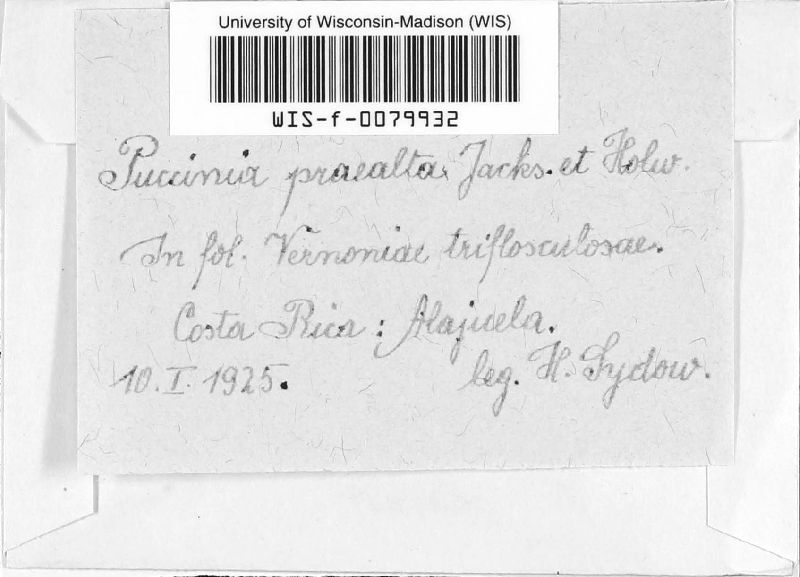 University of Wisconsin-Madison (WIS)
WIS-f-0079932
Puccinia praealta Jacks. et Holw.
In fol. Vernoniae triflosculosae.
Costa Rica: Alajuela.
10. I. 1925.
leg. H. Sydow.